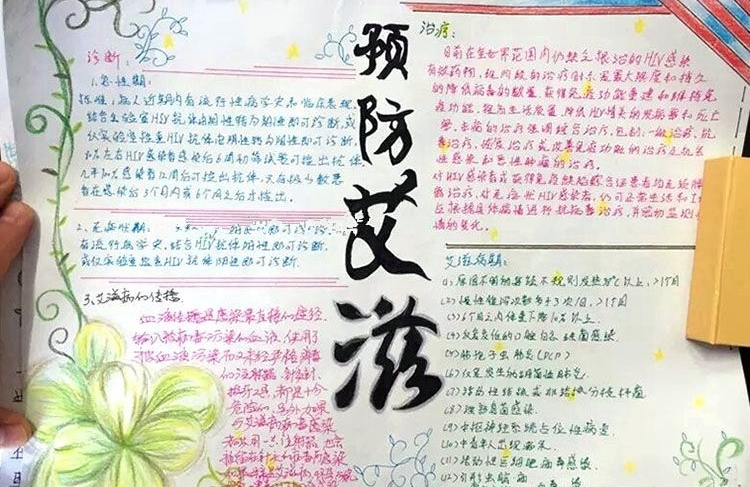 预防艾滋
诊断：
1.急性期：
标准：病人近期内有流行病学史和临床表现，
结合实验室HIV抗体由阴性转为阳性即可诊断，或
仅实验室检查HIV抗体由阴性转为阳性即可诊断。
80%左右HIV感染者感染后6周初筛试验可检出抗体，
几乎100%感染者12周后可检出抗体，只有极少数患
者在感染后3个月内或6个月后才检出。
2、无症状期：
有流行病学史，结合HIV抗体阳性即可诊断，
或仅实验室检查HIV抗体阳性即可诊断.
3.艾滋病的传播
血液传播是感染最直接的途径.
输入被病毒污染的血液，使用了
被血液污染而又未经严格消毒
的注射器、针灸针、
拔牙工具，都是十分
危险的。另外如果
与艾滋病病毒感染
者共用一只注射器，也会
治疗：
目前在全世界范围内仍缺乏根治的HIV感染
有效药物，现阶段的治疗目标是最大限度和持久
的降低病毒的载量，获得免疫功能重建和维持免
疫功能，提高生活质量，降低HIV相关的发病率和死亡
率.本病的治疗强调综合治疗，包括：一般治疗、抗
毒治疗、恢复治疗或改善免疫功能的治疗及机会
性感染和恶性肿瘤的治疗。
对HIV感染者或获得免疫缺陷综合征患者均无须隔
离治疗，对无症状HIV感染者，仍可正常生活和工
应根据具体病情进行抗病毒治疗，并密切监测
情的变化。
艾滋病期：
(1)原因不明的持续不规则发热38℃以上，>1个月
(2)慢性腹泻次数多于3次/日，>1个月
(3)6个月之内体重下降10%以上
(4)反复发作的口腔白色念珠菌感染.
(5)肺孢子虫肺炎(PCP)
(6)反复发生的细菌性肺炎.
(7)活动性结核或非结核分枝杆菌
(8)深部真菌感染.
(9)中枢神经系统占位性病变.
(10)中青年人出现痴呆.
(11)活动性巨细胞病毒感染.
(12)弓形虫脑病